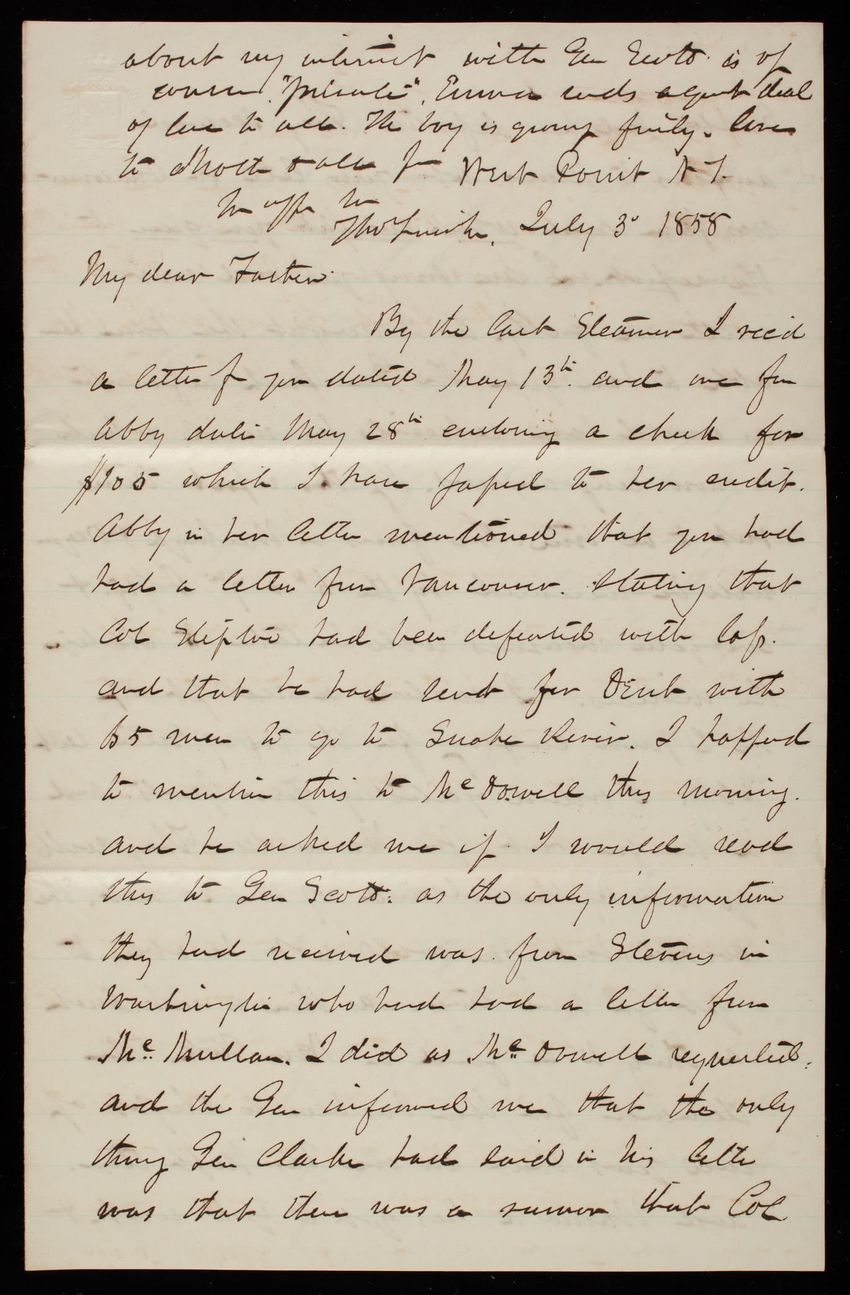 about my interview with Gen Scott is of
course "private". Emma sends a great deal
of love to all. The boy is growing finely. Love
to Mother & all fr West Point N Y.
Yr aff Son
Thos Lincoln. July 3d 1858
My dear Father.
By the last Steamer I rec'd
a letter fr you dated May 13th. and one frm
Abby date May 28th enclosing a check for
$105 which I have passed to her credit.
Abby in her letter mentioned that you had
had a letter from Vancouver. stating that
Col Steptoe had been defeated with loss.
and that he had sent for Dent with
65 men to go to Snake River. I happened
to mention this to McDowell this morning.
and he asked me if I would read
this to Gen Scott. as the only information
they had received was from Stevens in
Washington who had had a letter from
Mc Mullan. I did as McDowell requested.
and the Gen informed me that the only
thing Gen Clarke had said in his letter
was that there was a rumor that Col